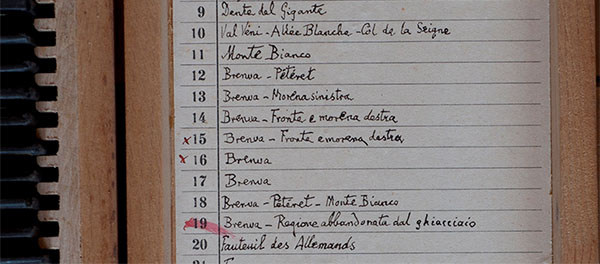 9 Dente del Gigante
10 Val Véni - Allée Blanche - Col de la Seigne
11 Monte Bianco
12 Brenva - Pétéret
13 Brenva - Morena sinistra
14 Brenva - Fronte e morena destra
x 15 Brenva - Fronte e morena destra
x 16 Brenva
17 Brenva
18 Brenva - Petéret - Monte Bianco
19 Brenva - Regione abbandonata dal ghiacciaio
20 Fauteuil des Allemands